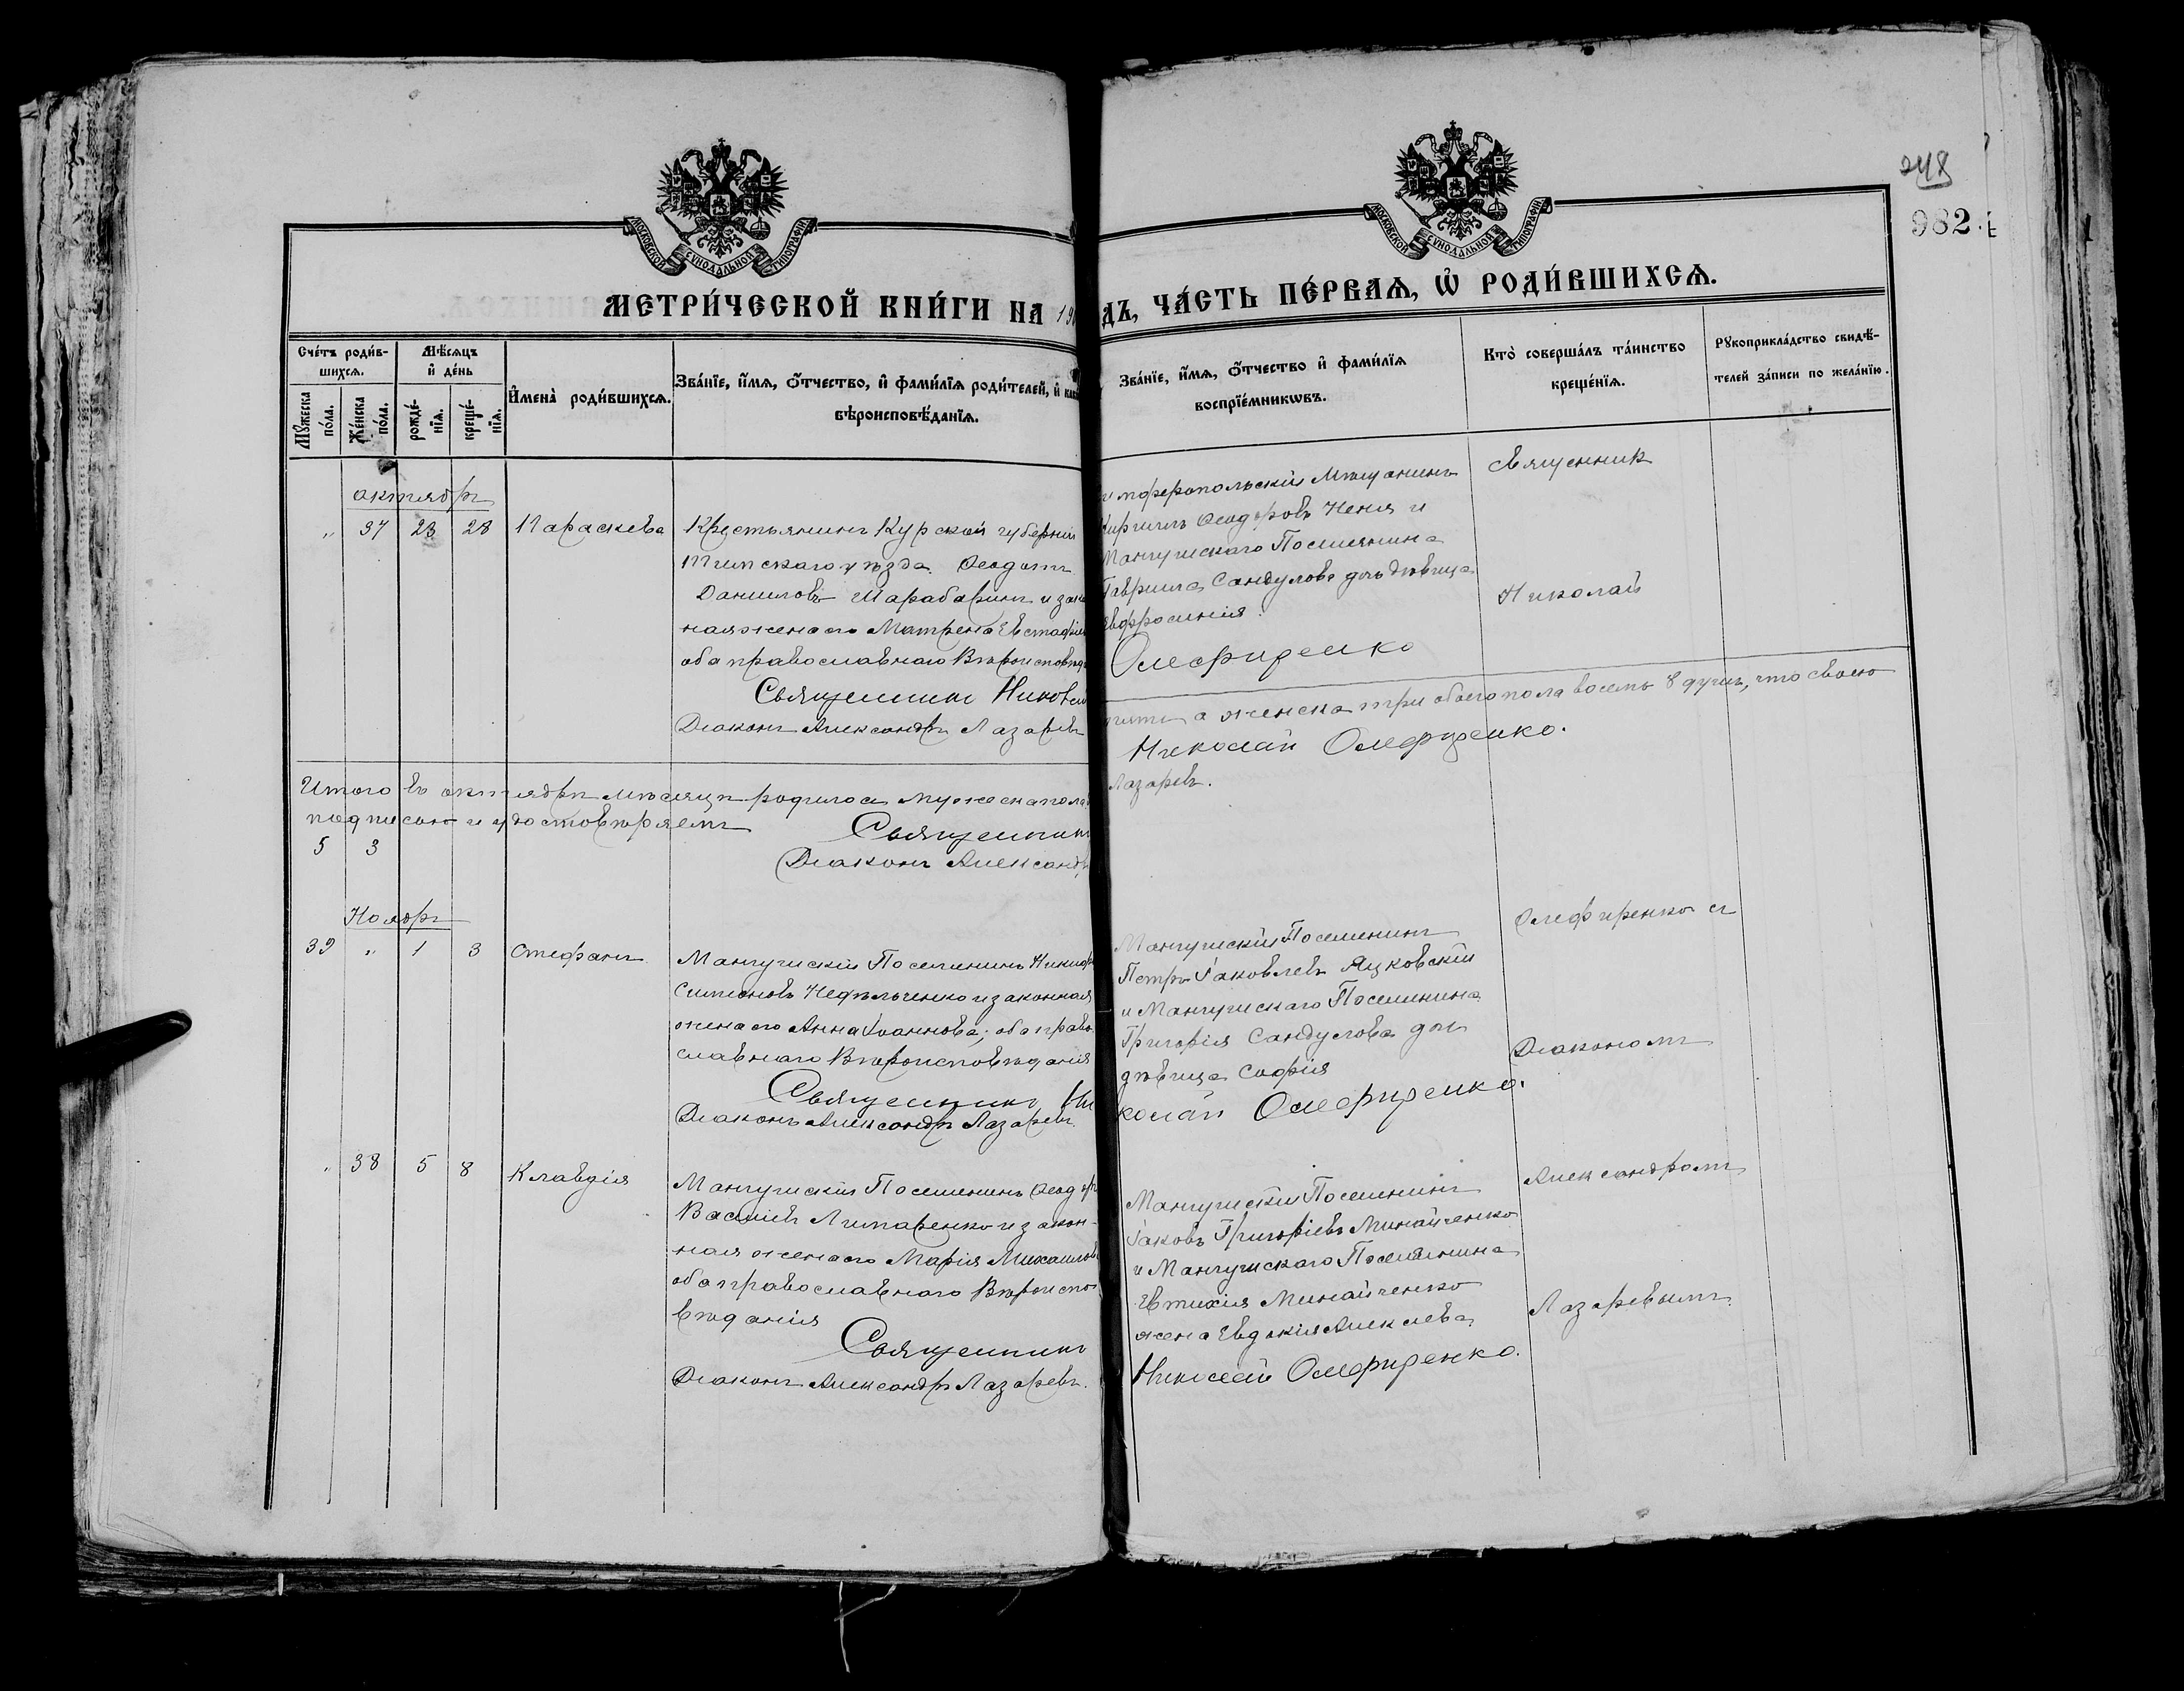 248
982.
МОСКОВСКОЙ СУНОДАЛЬНОЙ ТИПОГРАФІИ
МОСКОВСКОЙ СУНОДАЛЬНОЙ ТИПОГРАФІИ
МЕТРИ́ЧЕСКОЙ КНИ́ГИ НА 19
ДЪ, ЧА́СТЬ ПЕ́РВАѦ, Ѡ РОДИ́ВШИХСѦ.
Сче́тъ роди́в-
шихсѧ.
Мꙋ́жеска по́ла.
Же́нска по́ла.
Мѣ́сѧцъ
и де́нь
рожде́-
нїѧ.
креще́-
нїѧ.
Имена̀ роди́вшихсѧ.
Зва́нїе, и́мѧ, ѻ́тчество, и фами́лїѧ роди́телей, и
вѣроисповѣ́данїѧ.
Зва́нїе, и́мѧ, ѻ́тчество и фами́лїѧ
воспрїе́мникѡвъ.
Кто̀ соверша́лъ та́инство
креще́нїѧ.
Рꙋкоприкла́дство свидѣ́-
телей за́писи по жела́нїю.
октябрь
" 37 23 28 Параскева
Крестьянинъ Курской губерніи
Тимскаго уѣзда Ѳеодотъ
Даниловъ Шарабаринъ и зако
ная жена его Матрена Евстафіе
оба православнаго Вѣроисповѣд
Священникъ Николай
Діаконъ Александръ Лазаревъ
имферопольскій Мѣщанинъ
Ѳеодоровъ Неня и
Мангушскаго Поселянина
Гавріила Сандулова дочь дѣвица
Евфросинія.
Олефиренко
Священник
Николай
Итого въ октябрѣ мѣсяцѣ родилось мужеска пола
пять а женска три обоего пола восемь 8 душъ, что своею
подписью и удостовѣряемъ Священникъ
Николай Олефиренко.
5 3
Діаконъ Александръ
Лазаревъ.
Ноябрь
39 " 1 3 Стефанъ
Мангушскій Поселянинъ Никиф
Симеоновъ Недѣльченко и законная
жена его Анна Іоаннова; оба право
славнаго Вѣроисповѣданія
Священникъ Ни
Діаконъ Александръ Лазаревъ
Мангушскій Поселянинъ
Петръ Іаковлевъ Яцковскій
и Мангушскаго Поселянина
Григорія Сандулова дочь
дѣвица Софія
колай Олефиренко.
Олефиренко съ
Діакономъ
" 38 5 8 Клавдія
Мангушскій Поселянинъ Ѳеодор
Васильевъ Литаренко и закон-
ная жена его Марія Михаилов
оба православнаго Вѣроиспо
вѣданія
Священникъ
Діаконъ Александръ Лазаревъ.
Мангушскій Поселянинъ
Іаковъ Григорьевъ Минайченко
и Мангушскаго Поселянина
Евтихія Минайченко
жена Евдокія Алексѣева
Николай Олефиренко.
Александромъ
Лазаревымъ.